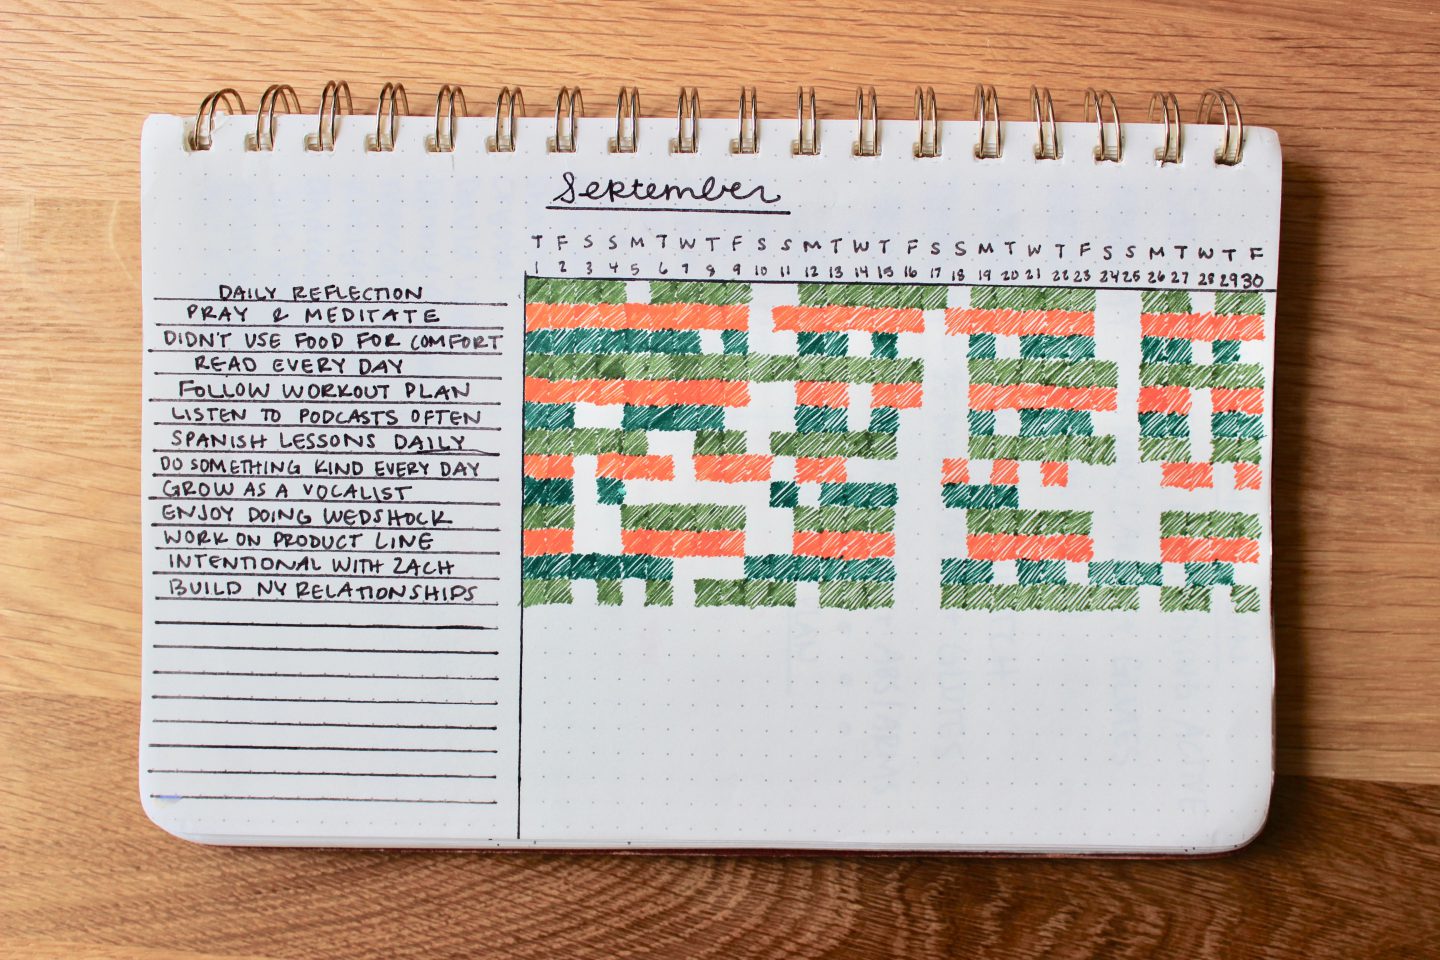 September
T F S S M T W T F S S M T W T F S S M T W T F S S M T W T F
1 2 3 4 5 6 7 8 9 10 11 12 13 14 15 16 17 18 19 20 21 22 23 24 25 26 27 28 29 30
DAILY REFLECTION
PRAY & MEDITATE
DIDN'T USE FOOD FOR COMFORT
READ EVERY DAY
FOLLOW WORKOUT PLAN
LISTEN TO PODCASTS OFTEN
SPANISH LESSONS DAILY
DO SOMETHING KIND EVERY DAY
GROW AS A VOCALIST
ENJOY DOING WEDSHOCK
WORK ON PRODUCT LINE
INTENTIONAL WITH ZACH
BUILD NY RELATIONSHIPS